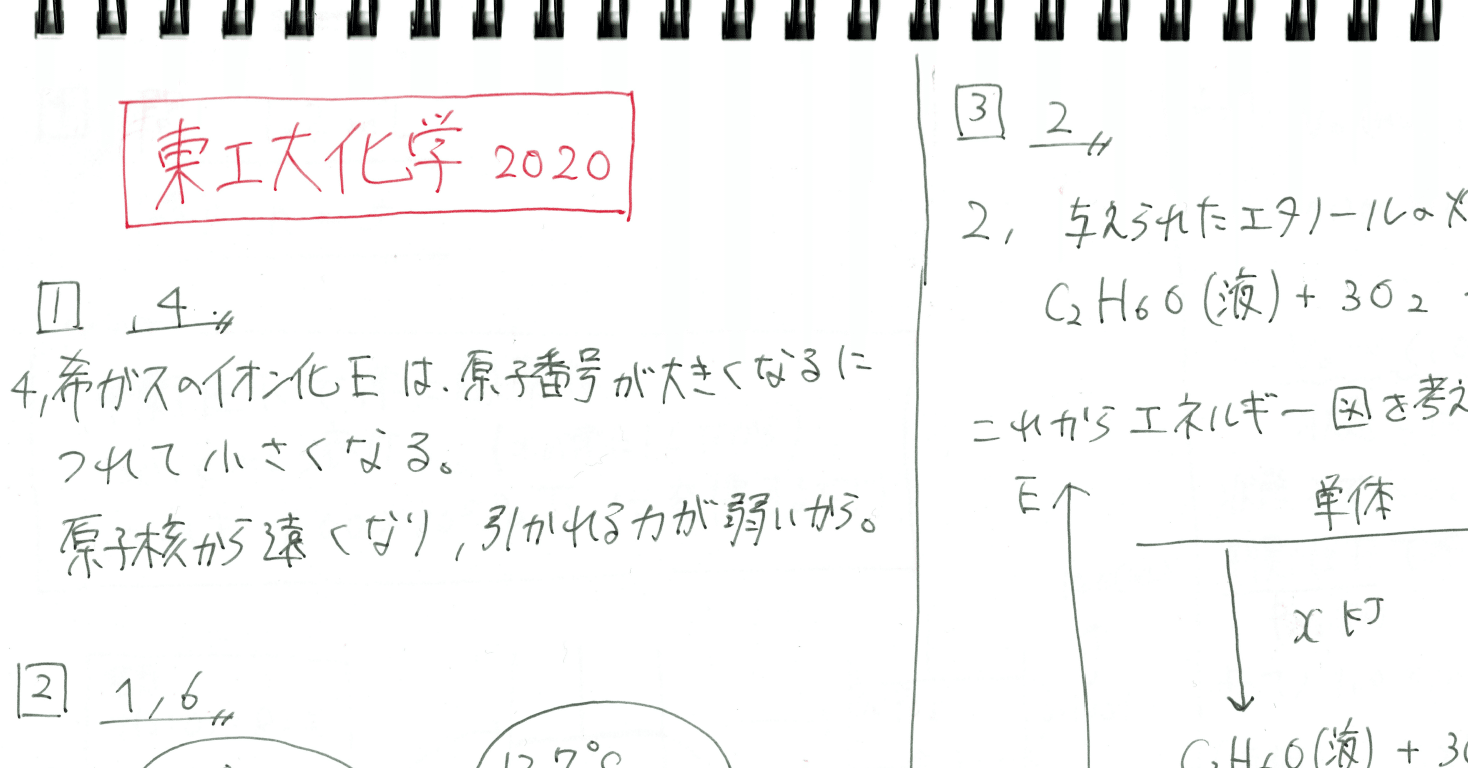 東工大化学 2020
1 4
4, 希ガスのイオン化Eは、原子番号が大きくなるに
つれて小さくなる。
原子核から遠くなり, 引かれる力が弱いから。
2 1, 6
127°C
3 2
2, 与えられたエタノールの
C₂H₆O(液) + 3O₂
これからエネルギー図を考え
E
単体
x kJ
C₂H₆O(液) + 3O